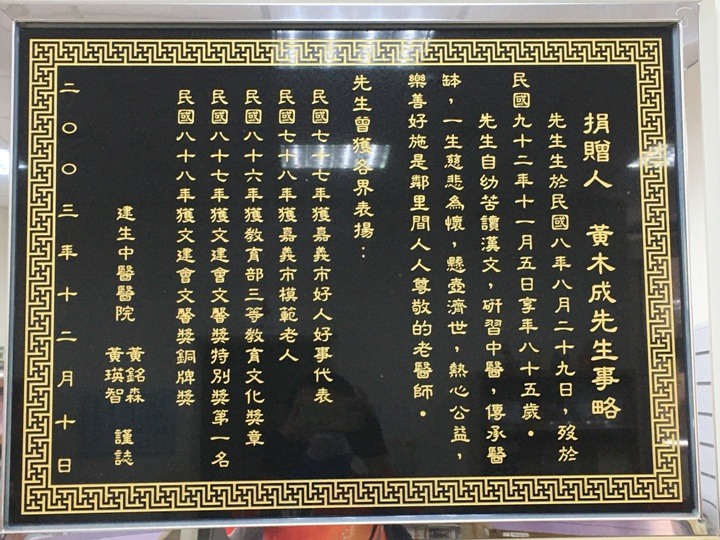 捐贈人　黃木成先生事略
先生生於民國八年八月二十九日，歿於
民國九十二年十一月五日享年八十五歲。
先生自幼苦讀漢文，研習中醫，傳承醫
缽，一生慈悲為懷，懸壺濟世，熱心公益，
樂善好施是鄰里間人人尊敬的老醫師。
先生曾獲各界表揚：
民國七十七年獲嘉義市好人好事代表
民國七十八年獲嘉義市模範老人
民國八十六年獲教育部三等教育文化獎章
民國八十七年獲文建會文馨獎特別獎第一名
民國八十八年獲文建會文馨獎銅牌獎
建生中醫醫院　黃銘森
黃瑛智　謹誌
二〇〇三年十二月十日